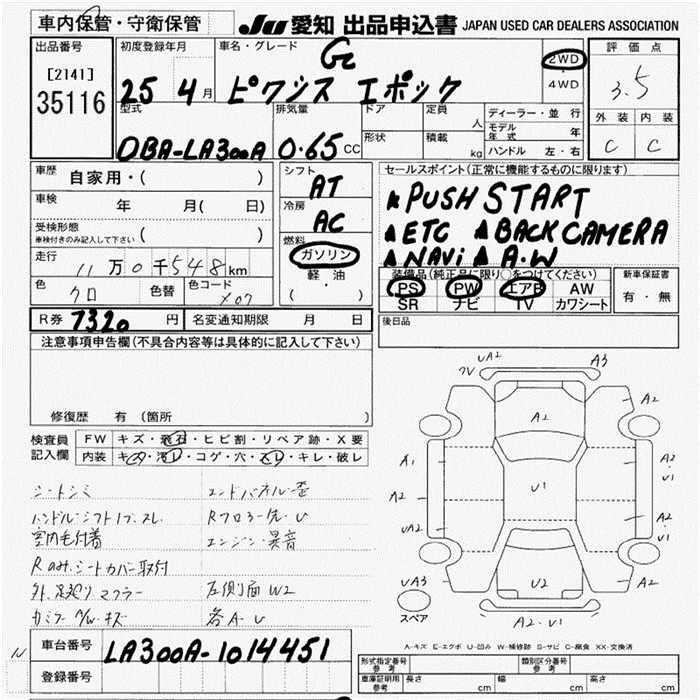 車内保管・守衛保管
JU 愛知 出品申込書 JAPAN USED CAR DEALERS ASSOCIATION
出品番号
[2141]
35116
初度登録年月
25 4月
車名・グレード
Gc
ピクシス エポック
2WD
・
4WD
評価点
3.5
外装 内装
C C
型式
DBA-LA300A
排気量
0.65 CC
ドア
定員
人
形状
積載
kg
ディーラー・並行
モデル年式 年
ハンドル 左・右
車歴
自家用・( )
車検
年 月( 日)
受検形態
車検付きのみ記入して下さい ( )
走行
11万0千548km
色
クロ
色替
色コード
X07
シフト
AT
冷房
AC
燃料
ガソリン
・
軽・油
( )
セールスポイント(正常に機能するものに限ります)
PUSH START
ETC BACK CAMERA
NAVi A・W
装備品(純正品に限り○をつけてください)
PS PW エアB AW
SR ナビ TV カワシート
新車保証書
有・無
R券 7320 円
名変通知期限 月 日
後日品
注意事項申告欄(不具合内容等は具体的に記入して下さい)
修復歴 有(箇所 )
検査員
記入欄
FW キズ・飛石・ヒビ割・リペア跡・X要
内装 キズ・汚レ・コゲ・穴・スレ・キレ・破レ
シートシミ
エンドパネル歪
ハンドル・シフトノブ・スレ
室内毛付着
エンジン・異音
シートカバー取付
マフラー
左側面W2
キズ
各A・U
UA2
A3
A2
A2
A1
U1
A2
A2
UA2
A2
・
U1
UA3
U2
A2
スペア
A2・U1
A-キズ E-エクボ U-凹み W-補修跡 S-サビ C-腐食 XX-交換済
N
車台番号
LA300A-1014451
登録番号
形式指定番号
参考
類別区分番号
参考
車庫証明用
参考
長さ cm
幅 cm
高さ cm